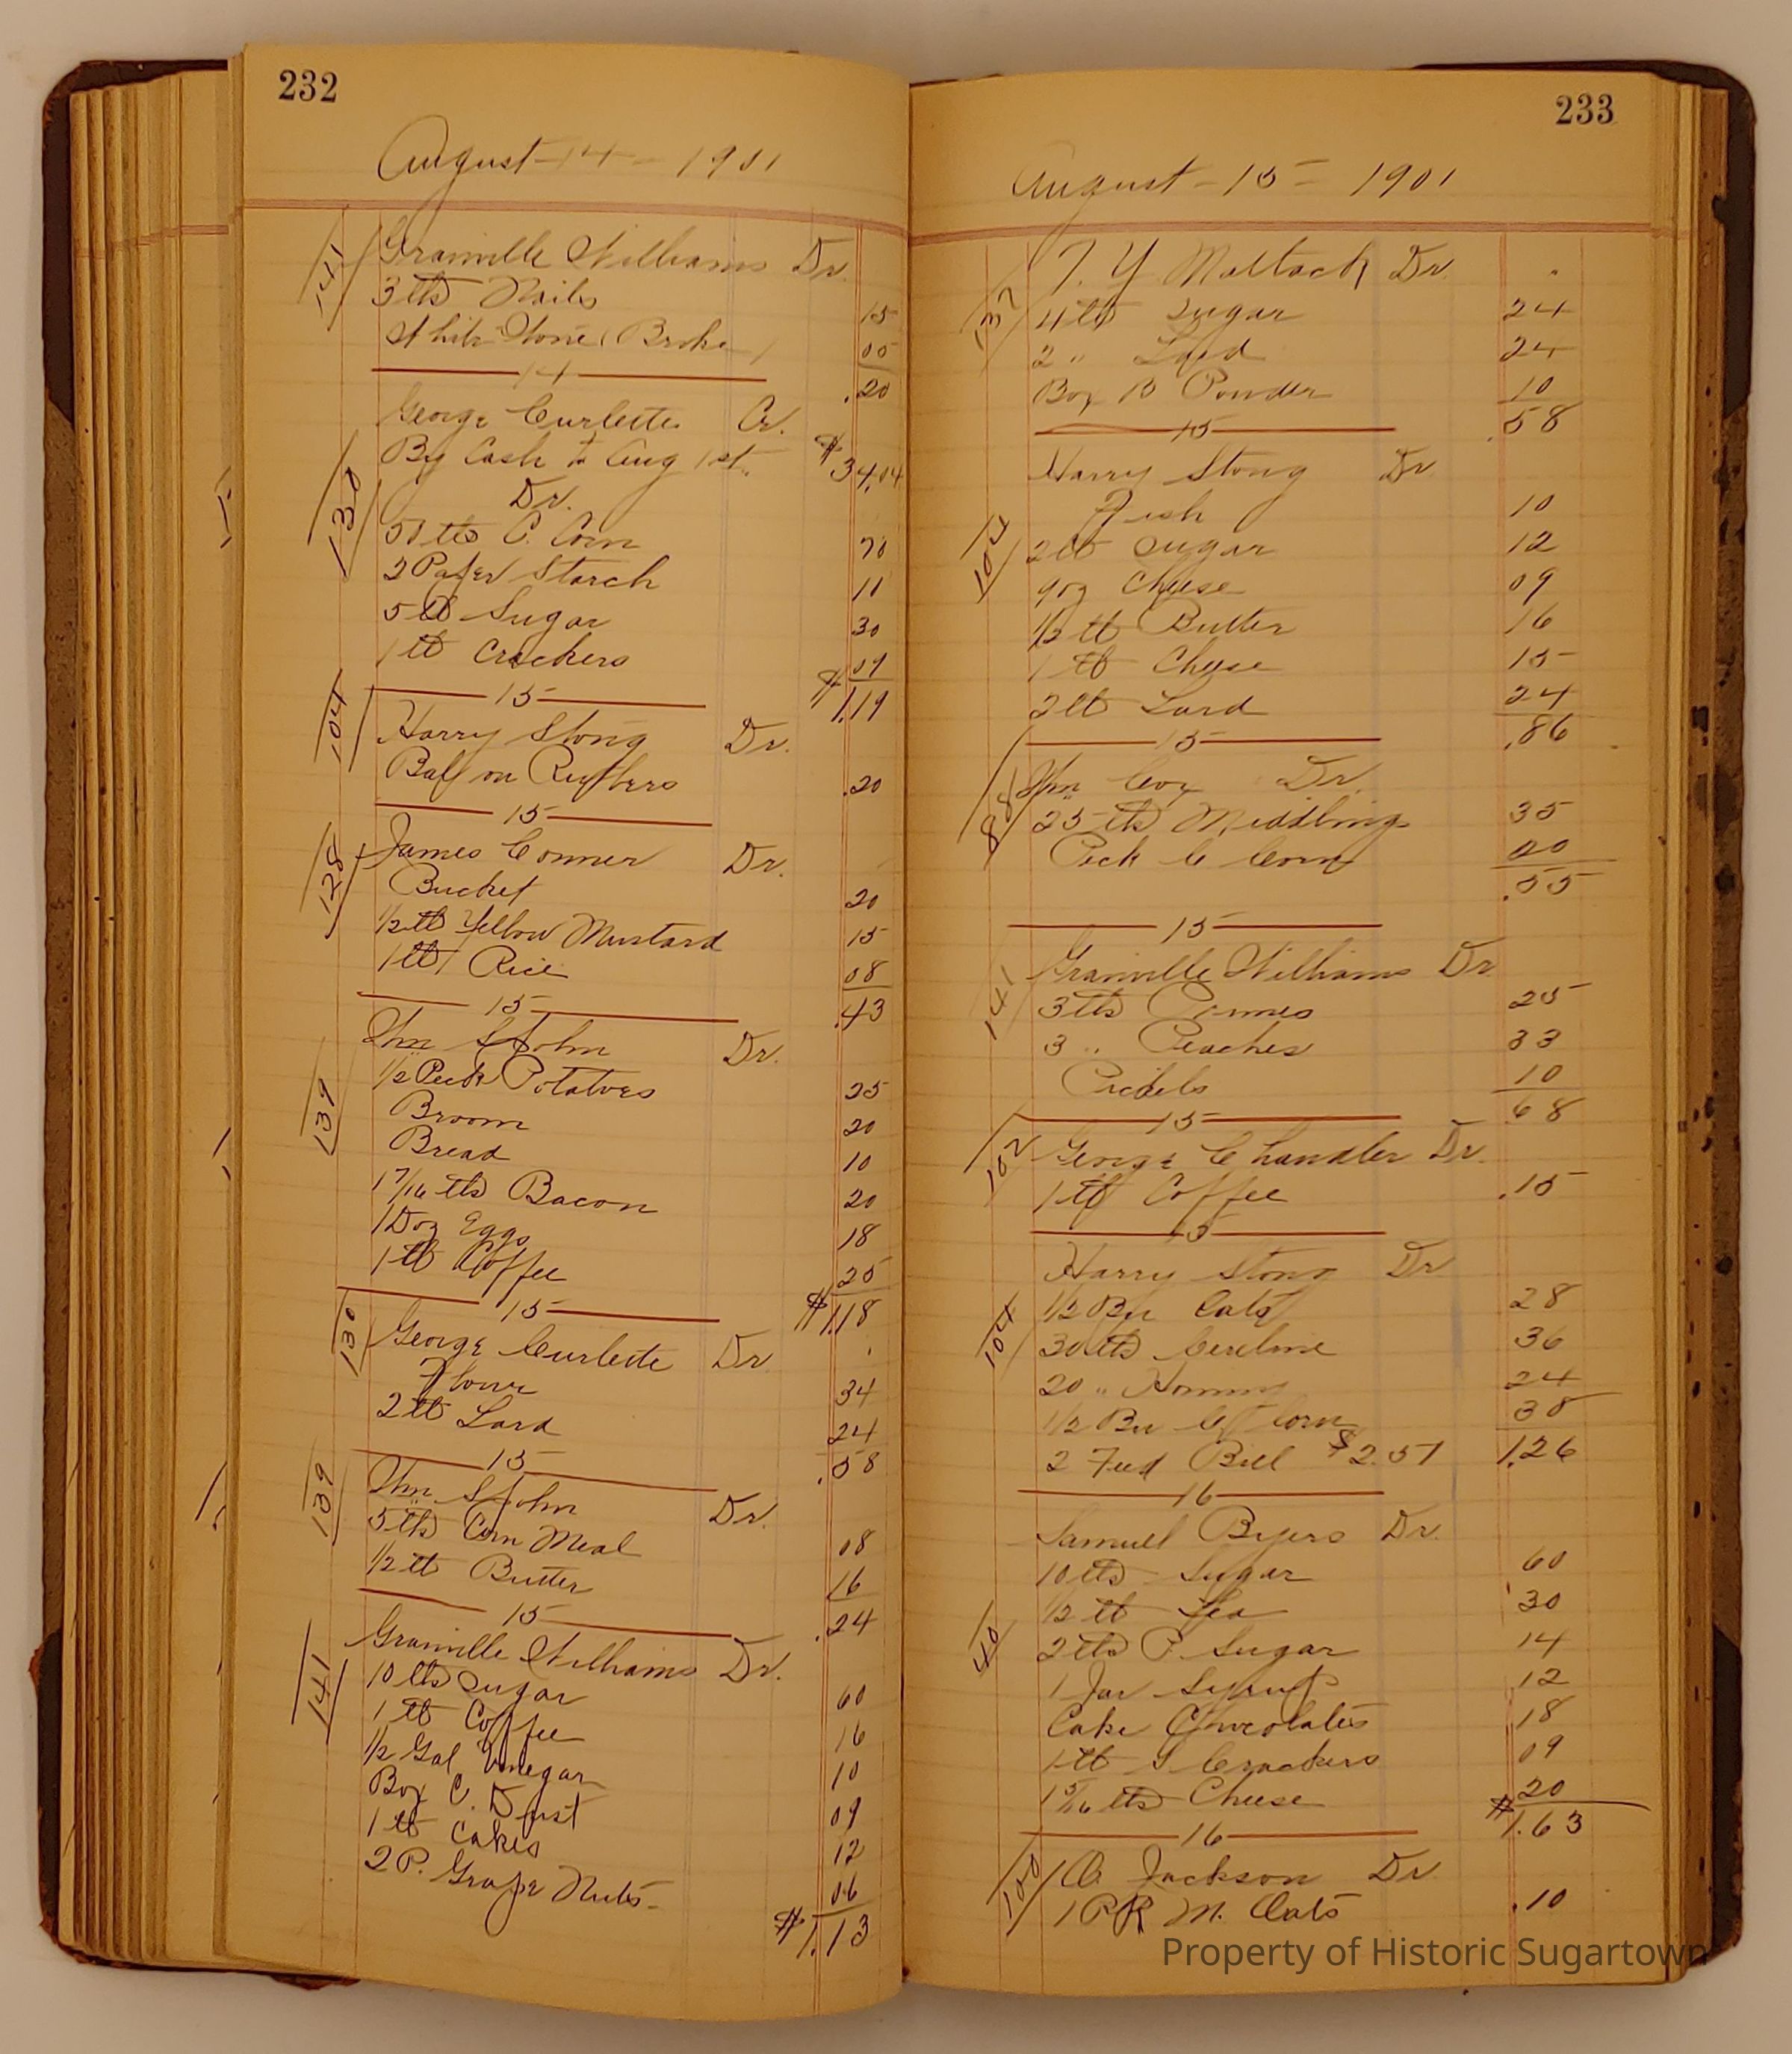 232
August 14 - 1901
141
Granville Williams Dr.
3 lbs Nails 15
White Stone (Broke) 05
.20
14
George Curlette Cr.
By Cash to Aug 1st. $34.04
130
Dr.
50 lbs C. Corn 70
2 Paper Starch 11
5 lb Sugar 30
1 lb Crackers 09
$1.19
15
104
Harry Stong Dr.
Bal on Rubbers .20
15
128
James Conner Dr.
Bucket 20
1/2 lb Yellow Mustard 15
1 lb Rice 08
.43
15
139
Thn StJohn Dr.
1/2 Peck Potatoes 25
Broom 20
Bread 10
1 7/16 lbs Bacon 20
1 Doz Eggs 18
1 lb Coffee 25
$1.18
15
130
George Curlette Dr
Flour 34
2 lb Lard 24
.58
15
139
Thn. StJohn Dr.
5 lbs Corn Meal 08
1/2 lb Butter 16
.24
15
141
Granville Williams Dr.
10 lbs Sugar 60
1 lb Coffee 16
1/2 Gal Vinegar 10
Box C. Dust 09
1 lb Cakes 12
2 P. Grape Nuts 06
$1.13
233
August - 15 - 1901
137
T. Y Matlack Dr.
4 lb Sugar 24
2 " Lard 24
Box B Powder 10
.58
15
Harry Stong Dr
Fish 10
104
2 lb Sugar 12
9 oz Cheese 09
1/2 lb Butter 16
1 lb Cheese 15
2 lb Lard 24
.86
15
88
Jhn Coy Dr.
25 lbs Middlings 35
Peck C Corn 20
.55
15
141
Granville Williams Dr
3 lbs Prunes 25
3 " Peaches 33
Pickels 10
68
15
102
George Chandler Dr.
1 lb Coffee .15
15
Harry Stong Dr
1/2 Bu Oats 28
104
30 lbs Cereline 36
20 " Hominy 24
1/2 Bu Corn 38
2 Feed Bill $2.51 1.26
16
Samuel Byers Dr.
10 lbs Sugar 60
1/2 lb Tea 30
40
2 lbs P. Sugar 14
1 Jar Syrup 12
Cake Chocolates 18
1 lb S Crackers 09
1 5/16 lbs Cheese 20
$1.63
16
100
Jackson Dr
1 PK M. Oats .10
Property of Historic Sugartown